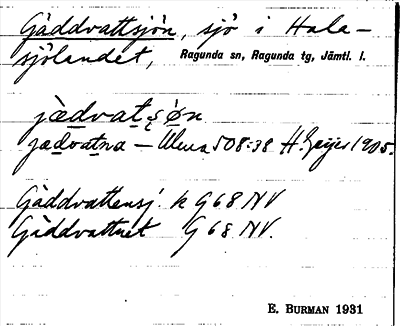 Gäddvattsjön, sjö i Hale-
sjölandet, Ragunda sn, Ragunda tg, Jämtl. l.
jædvatʂøn
jadvatna — 508:38 H. Geijer 1905.
Gäddvattensj. k G68 NV
Gäddvattnet G68 NV.
E. BURMAN 1931